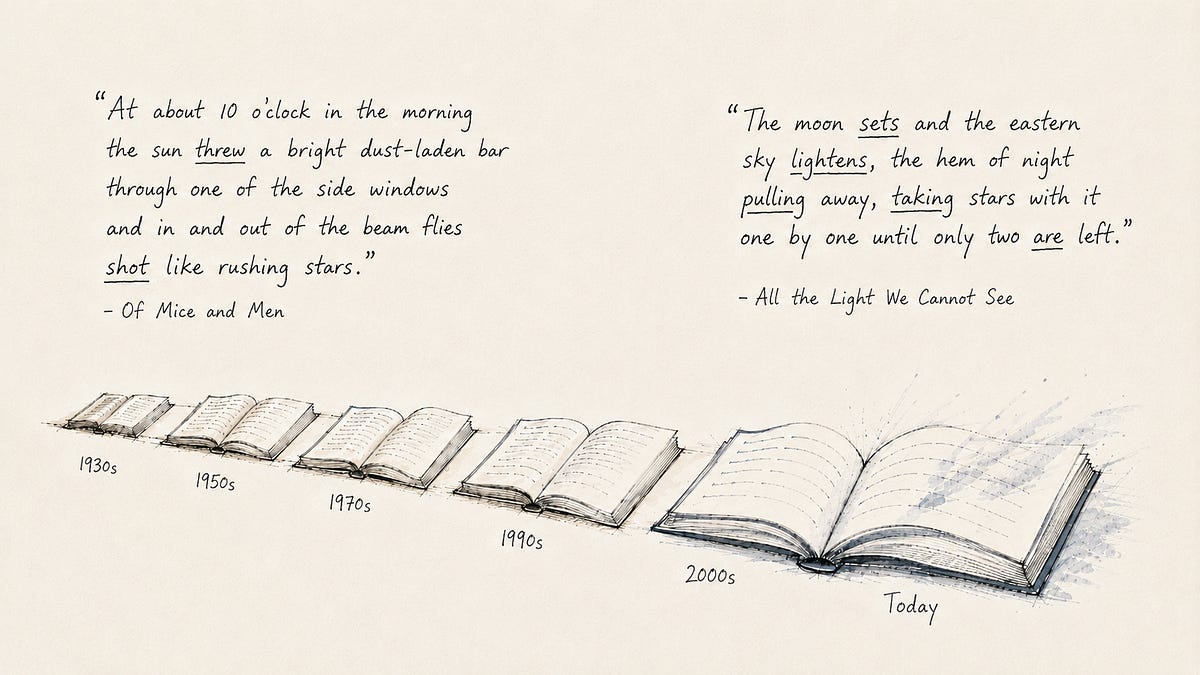 “At about 10 o'clock in the morning
the sun threw a bright dust-laden bar
through one of the side windows
and in and out of the beam flies
shot like rushing stars.”
- Of Mice and Men
“The moon sets and the eastern
sky lightens, the hem of night
pulling away, taking stars with it
one by one until only two are left.”
- All the Light We Cannot See
1930s
1950s
1970s
1990s
2000s
Today